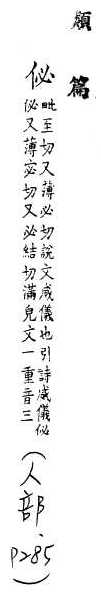 類
篇
佖
毗至切又薄必切說文威儀也引詩威儀佖
佖又薄宓切又必結切滿皃文一重音三
(人部
P285)